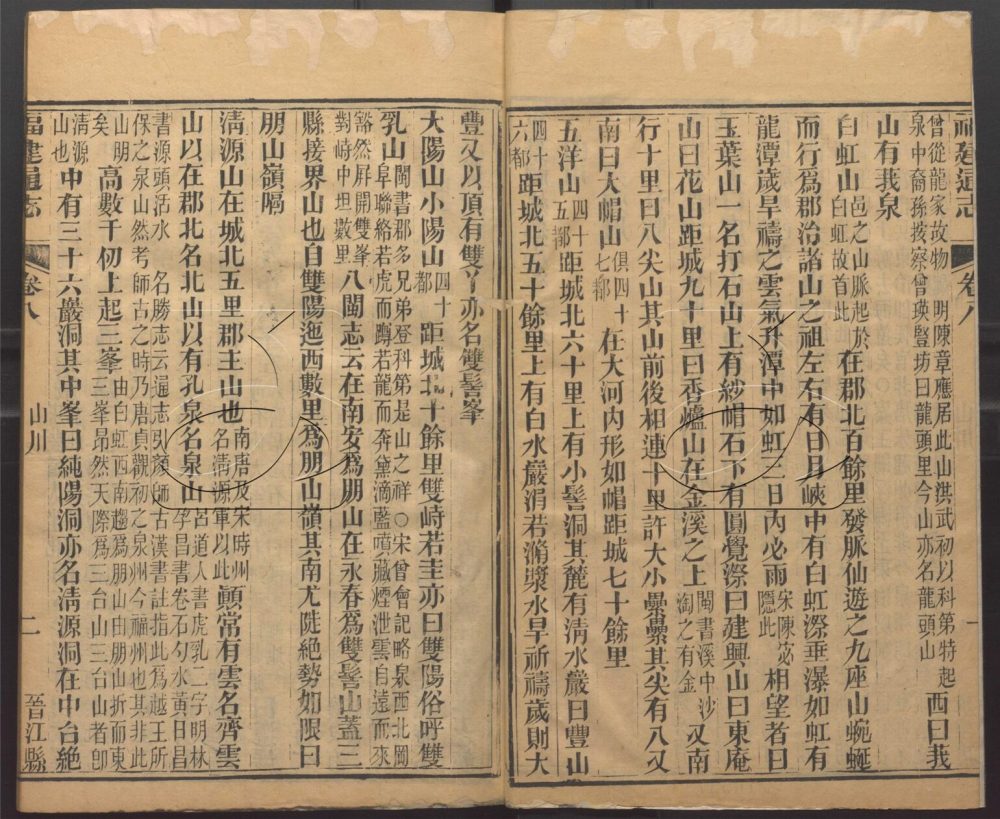 福建通志 卷八 一
曾從龍家故物 明陳章應居此山洪武初以科第特起
泉中裔孫按察曾瑛豎坊曰龍頭里今山亦名龍頭山
西曰莪
山有莪泉
白虹山
邑之山脈起於
白虹故首此
在郡北百餘里發脈仙遊之九座山蜿蜒
而行爲郡治諸山之祖左右有日月峽中有白虹漈垂瀑如虹有
龍潭歲旱禱之雲氣升潭中如虹三日內必雨
宋陳宓
隱此
相望者曰
玉葉山一名打石山上有紗帽石下有圓覺漈曰建興山曰東庵
山曰花山距城九十里曰香爐山在金溪之上
閩書溪中沙
淘之有金
又南
行十里曰八尖山其山前後相連十里許大小纍纍其尖有八又
南曰大帽山
俱四十
七都
在大河內形如帽距城七十餘里
五洋山
四十
五都
距城北六十里上有小髻洞其麓有清水巖曰豐山
四十
六都
距城北五十餘里上有白水巖涓若潲漿水旱祈禱歲則大
豐又以頂有雙丫亦名雙髻峯
大陽山小陽山
四十
都
距城北十餘里雙峙若圭亦曰雙陽俗呼雙
乳山
閩書郡多兄弟登科第是山之祥○宋曾會記略泉西北岡
阜聯絡若虎而蹲若龍而奔黛滴藍噴藏煙泄雲自遠而來
豁然屛開雙峯
對峙中坦數里
八閩志云在南安爲朋山在永春爲雙髻山蓋三
縣接界山也自雙陽迤西數里爲朋山嶺其南尤陡絶勢如限曰
朋山嶺隔
淸源山在城北五里郡主山也
南唐及宋時州
名淸源軍以此
顚常有雲名齊雲
山以在郡北名北山以有孔泉名泉山
呂道人書虎乳二字明林
孕昌書卷石勺水黃日昌
書源頭活水 名勝志云通志引顏師古漢書註指此爲越王所
保之泉山然考師古之時乃唐貞觀初之泉州今福州也其非此
山朋
矣
高數千仞上起三峯
由白虹西南趨爲朋山由朋山折而東
三峯昻然天際爲三台山三台山者卽
淸源
山也
中有三十六巖洞其中峯曰純陽洞亦名淸源洞在中台絶
福建通志 卷八 山川 二 晉江縣